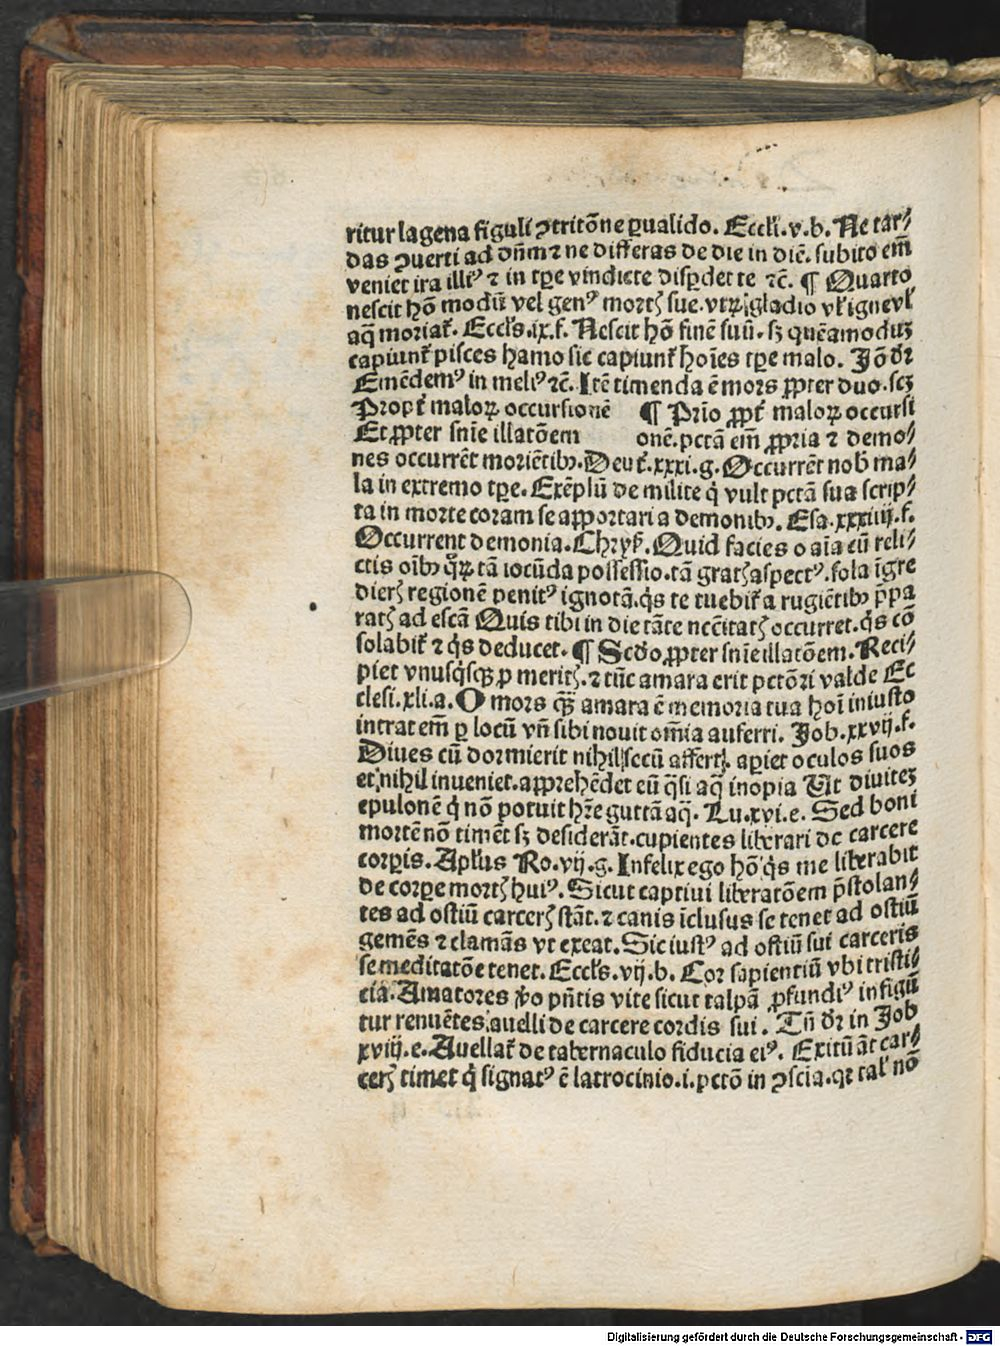 ritur lagena figuli ꝯtritōne ꝑualido. Eccli.v.b. Ne tar⸗
das ꝯuerti ad dn̄m ⁊ ne differas de die in diē. subito em̄
veniet ira illiꝰ ⁊ in tꝑe vindicte disꝑdet te ⁊c̄. ¶ Quarto
nescit hō modū vel genꝰ mortꝭ sue. vtꝝ gladio vl̓ igne vl̓
aq̄ moriat᷑. Eccl̓s.ix.f. Nescit hō finē suū. sꝫ quēamoduꝫ
capiunt᷑ pisces hamo sic capiunt᷑ hoīes tꝑe malo. Jō dr̄
Emēdemꝰ in meliꝰ ⁊c̄. Itē timenda ē mors ꝓpter duo. scꝫ
Propt̓ maloꝝ occursionē ¶ Prīo ꝓpt̓ maloꝝ occursi
Et ꝓpter snīe illatōem onē. pctā em̄ ꝓpria ⁊ demo⸗
nes occurrēt moriētibꝫ. Deut̓.xxxi.g. Occurrēt nob̓ ma⸗
la in extremo tꝑe. Exēplū de milite q̓ vult pctā sua scrip⸗
ta in morte coram se apportari a demonibꝫ. Esa.xxxiiij.f.
Occurrent demonia. Chrys̓. Quid facies o aīa cū reli⸗
ctis oībꝫ q̄ꝝ tā iocūda possessio. tā gratꝭ aspectꝰ. sola īgre
dierꝭ regionē penitꝰ ignotā. q̓s te tuebit᷑ a rugiētibꝫ p̄pa
ratꝭ ad escā Quis tibi in die tāte nccītatꝭ occurret. q̓s cō
solabit᷑ ⁊ q̓s deducet. ¶ Scd̓o ꝓpter snīe illatōem. Reci⸗
piet vnusq̓sqꝫ ꝓ meritꝭ. ⁊ tūc amara erit pctōri valde Ec
clesi.xli.a. O mors q̄ꝫ amara ē memoria tua hoī iniusto
intrat em̄ ꝑ locū vn̄ sibi nouit om̄ia auferri. Job.xxvij.f.
Diues cū dormierit nihil secū affert. aꝑiet oculos suos
et nihil inueniet. apprehēdet eū q̄si aq̄ inopia Ut diuiteꝫ
epulonē q̓ nō potuit hr̄e guttā aq̄. Lu.xvi.e. Sed boni
mortē nō timēt sꝫ desiderāt. cupientes liberari de carcere
corꝑis. Apl̓us Ro.vij.g. Infelix ego hō q̓s me liberabit
de corꝑe mortꝭ huiꝰ. Sicut captiui liberatōem p̄stolan⸗
tes ad ostiū carcerꝭ stāt. ⁊ canis īclusus se tenet ad ostiū
gemēs ⁊ clamās vt exeat. Sic iustꝰ ad ostiū sui carceris
se meditatōe tenet. Eccl̓s.vij.b. Cor sapientiū vbi tristi⸗
cia. Amatores v̓o pn̄tis vite sicut talpā ꝓfundiꝰ infigū
tur renuētes auelli de carcere cordis sui. Tn̄ dr̄ in Job
xviij.e. Auellat᷑ de tabernaculo fiducia eiꝰ. Exitū āt car⸗
cerꝭ timet q̓ signatꝰ ē latrocinio.i. pctō in ꝯscia. qꝛ tal̓ nō
Digitalisierung gefördert durch die Deutsche Forschungsgemeinschaft - DFG